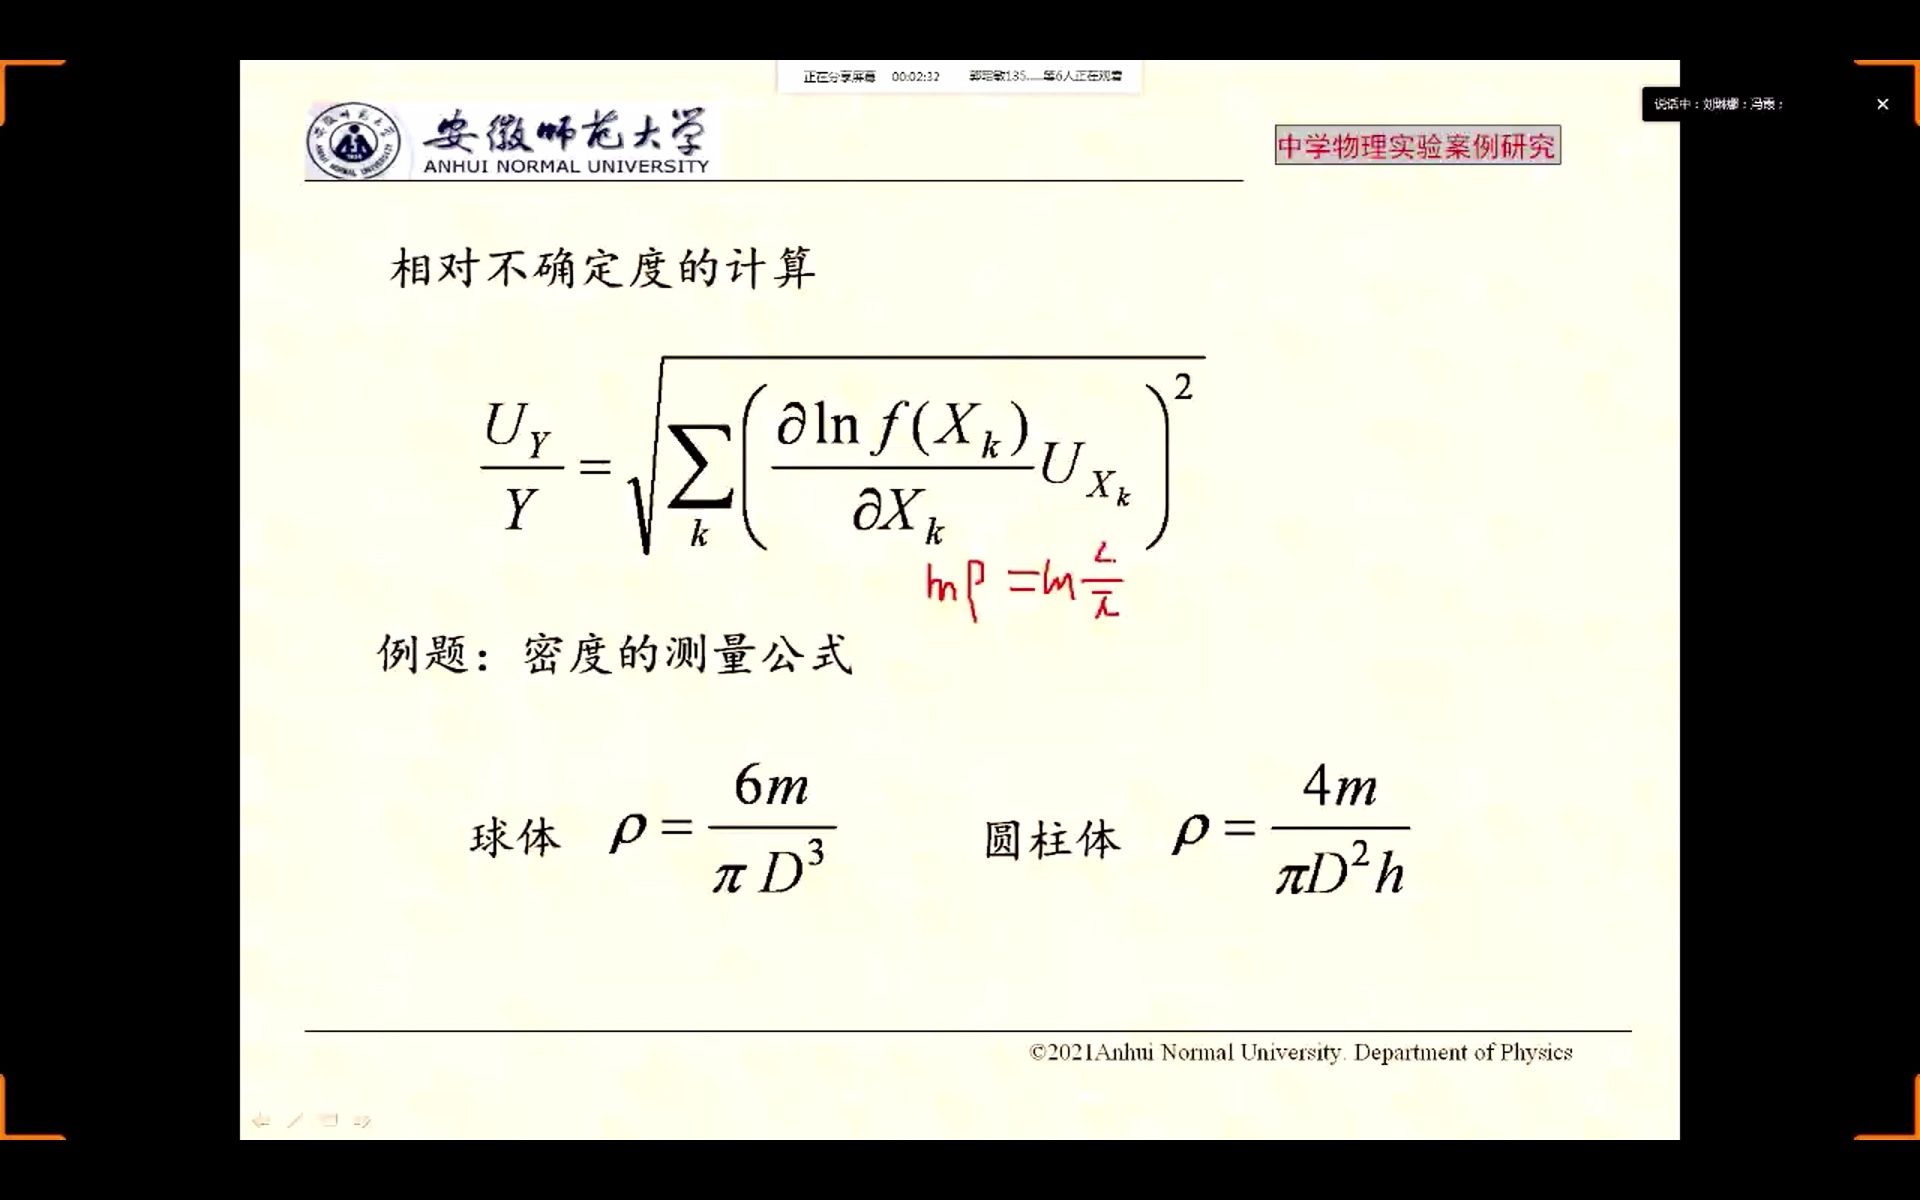 正在分享屏幕 00:02:32 郭昭敏135.....等6人正在观看
说话中：刘琳娜；冯霞；
安徽师范大学
ANHUI NORMAL UNIVERSITY
中学物理实验案例研究
相对不确定度的计算
U_Y / Y = √(∑_k (∂ln f(X_k) / ∂X_k U_{X_k})^2)
lnρ = ln
例题：密度的测量公式
球体 ρ = 6m / π D^3
圆柱体 ρ = 4m / πD^2 h
©2021Anhui Normal University. Department of Physics